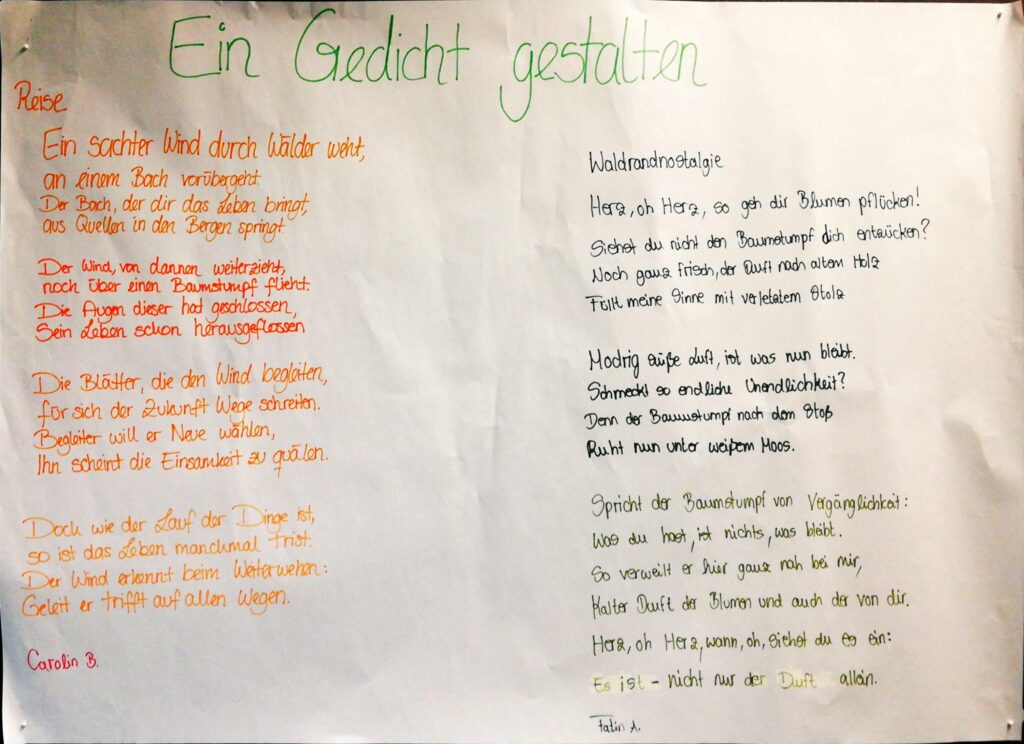 Ein Gedicht gestalten
Reise
Ein sachter Wind durch Wälder weht,
an einem Bach vorübergeht.
Der Bach, der dir das Leben bringt,
aus Quellen in den Bergen springt.
Der Wind, von dannen weiterzieht,
noch über einen Baumstumpf flieht.
Die Augen dieser hat geschlossen,
Sein Leben schon herausgeflossen
Die Blätter, die den Wind begleiten,
für sich der Zukunft Wege schreiten.
Begleiter will er Neue wählen,
Ihn scheint die Einsamkeit zu quälen.
Doch wie der Lauf der Dinge ist,
so ist das Leben manchmal trist.
Der Wind erkennt beim Weiterwehen:
Geleit er trifft auf allen Wegen.
Carolin B.
Waldrandnostalgie
Herz, oh Herz, so geh dir Blumen pflücken!
Siehst du nicht den Baumstumpf dich entzücken?
Noch ganz frisch, der Duft nach altem Holz
Füllt meine Sinne mit verletztem Stolz
Modrig süße Luft, ist was nun bleibt.
Schmeckt so endliche Unendlichkeit?
Denn der Baumstumpf nach dem Stoß
Ruht nun unter weißem Moos.
Spricht der Baumstumpf von Vergänglichkeit:
Was du hast, ist nichts, was bleibt.
So verweilt er hier ganz nah bei mir,
Kalter Duft der Blumen und auch der von dir.
Herz, oh Herz, wann, oh, siehst du es ein:
Es ist - nicht nur der Duft allein.
Talin A.